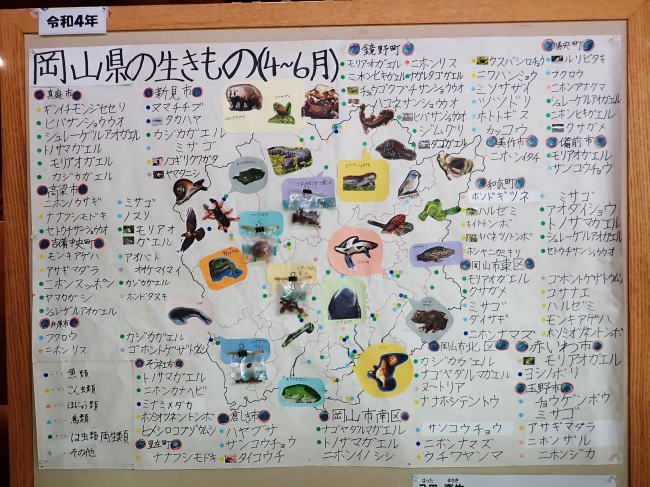 令和4年
岡山県の生きもの(4~6月)
真庭市
ギンイチモンジセセリ
ヒバサンショウウオ
シュレーゲルアオガエル
トノサマガエル
モリアオガエル
カジカガエル
高梁市
ニホンノウサギ
ナナフシモドキ
セトウチサンショウウオ
吉備中央町
モンキアゲハ
アサギマダラ
ニホンスッポン
ヤマカガシ
シュレーゲルアオガエル
井原市
フクロウ
ニホンリス
魚類
こん虫類
ほにゅう類
鳥類
は虫類 両生類
その他
新見市
ヌマチチブ
タカハヤ
カジカガエル
ミサゴ
ノコギリクワガタ
ヤマダニシ
ミサゴ
ノスリ
モリアオガエル
アオバト
オオケマイマイ
カジカガエル
ホンドタヌキ
カジカガエル
トノサマガエル
ニホンカナヘビ
ミナミメダカ
ホソミオツネントンボ
ヒメシロコブゾウムシ
里庄町
ナナフシモドキ
倉しき市
ハヤブサ
サンコウチョウ
タイコウチ
岡山市南区
ナゴヤダルマガエル
トノサマガエル
ニホンイノシシ
鏡野町
モリアオガエル
ニホンヒキガエル
チュウゴクブチサンショウウオ
ハコネサンショウウオ
ニホンリス
ナガレタゴガエル
ヒバサンショウウオ
ジムグリ
タゴガエル
ウスバシロチョウ
ニワハンミョウ
ミソサザイ
ツツドリ
ホトトギス
カッコウ
美作市
ニホンイタチ
勝央町
ルリビタキ
フクロウ
ニホンアナグマ
シュレーゲルアオガエル
ニホンヒキガエル
クサガメ
備前市
モリアオガエル
サンコウチョウ
和気町
ホンドギツネ
ハルゼミ
キイトトンボ
キバネツノトンボ
ミサゴ
アオダイショウ
トノサマガエル
シュレーゲルアオガエル
セトウチサンショウウオ
岡山市東区
モリアオガエル
クサガメ
ミサゴ
ダイサギ
ニホンナマズ
ハルゼミ
モンキアゲハ
ホソミオツネントンボ
岡山市北区
カジカガエル
ナゴヤダルマガエル
ヌートリア
ナナホシテントウ
サンコウチョウ
ニホンナマズ
ウチワヤンマ
赤いわ市
モリアオガエル
ヨシノボリ
玉野市
チョウゲンボウ
ミサゴ
アサギマダラ
ニホンザル
ニホンジカ
フクロウ